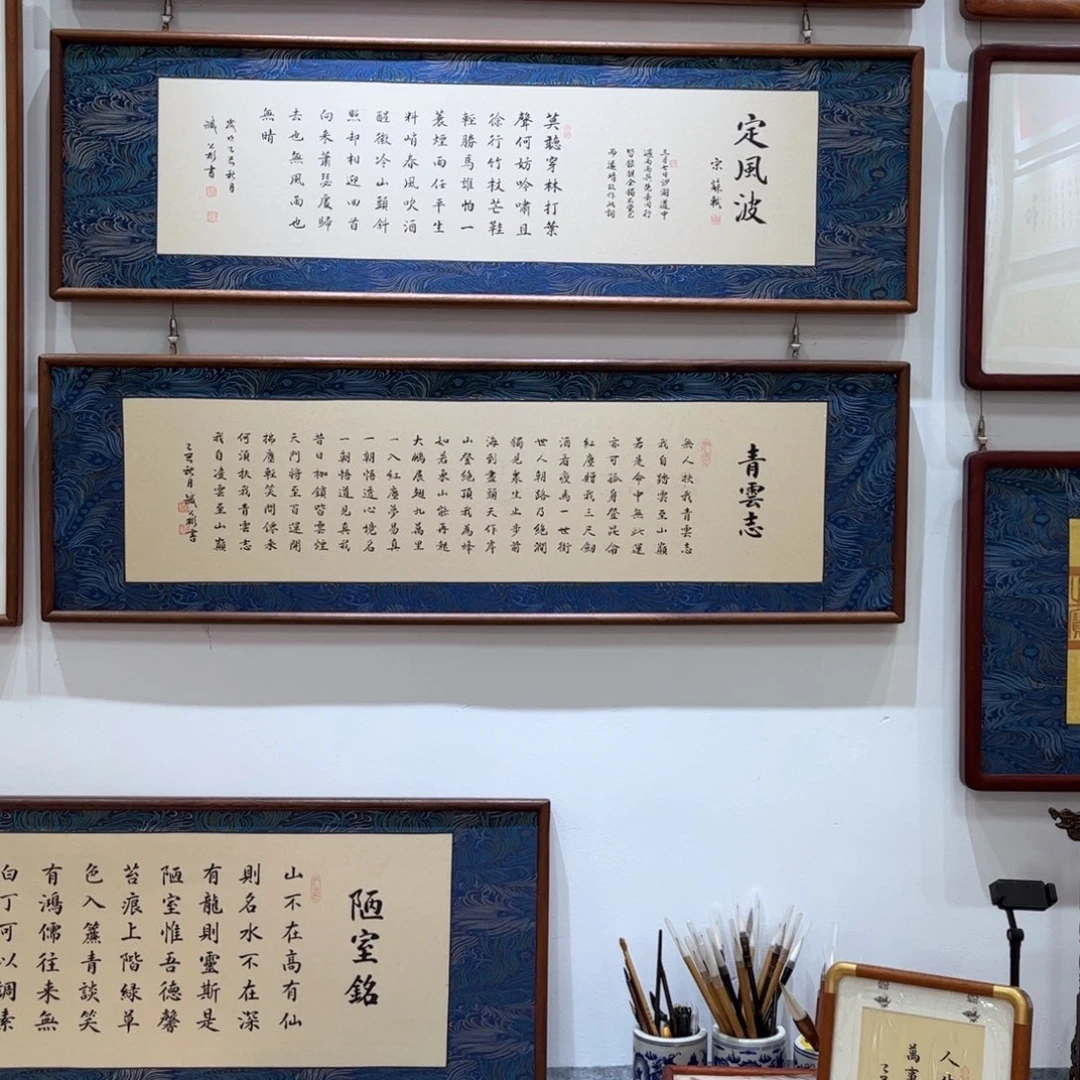 定風波
宋 蘇軾
三月七日沙湖道中
遇雨雨具先去同行
皆狼狽余獨不覺已
而遂晴故作此詞
莫聽穿林打葉
聲何妨吟嘯且
徐行竹杖芒鞋
輕勝馬誰怕一
蓑煙雨任平生
料峭春風吹酒
醒微冷山頭斜
照却相迎回首
向來蕭瑟處歸
去也無風雨也
無晴
歲次乙巳秋月
誠 彬書
青雲志
無人扶我青雲志
我自踏雪至山巔
若是命中無此運
亦可孤身登昆侖
紅塵贈我三尺劍
酒看瘦馬一世街
世人朝路乃絕澗
獨見衆生止步前
海到盡頭天作岸
山登絕頂我為峰
如若東山能再起
大鵬展翅九萬里
一入紅塵夢易真
一朝悟透心境名
一朝悟道見真我
昔日枷鎖皆雲煙
天門將至百運開
拂塵輕笑問儂來
何須扶我青雲志
我自凌雲至山巔
乙巳秋月 誠 彬書
陋室銘
山不在高有仙
則名水不在深
有龍則靈斯是
陋室惟吾德馨
苔痕上階綠草
色入簾青談笑
有鴻儒往来無
白丁可以調素
人
萬